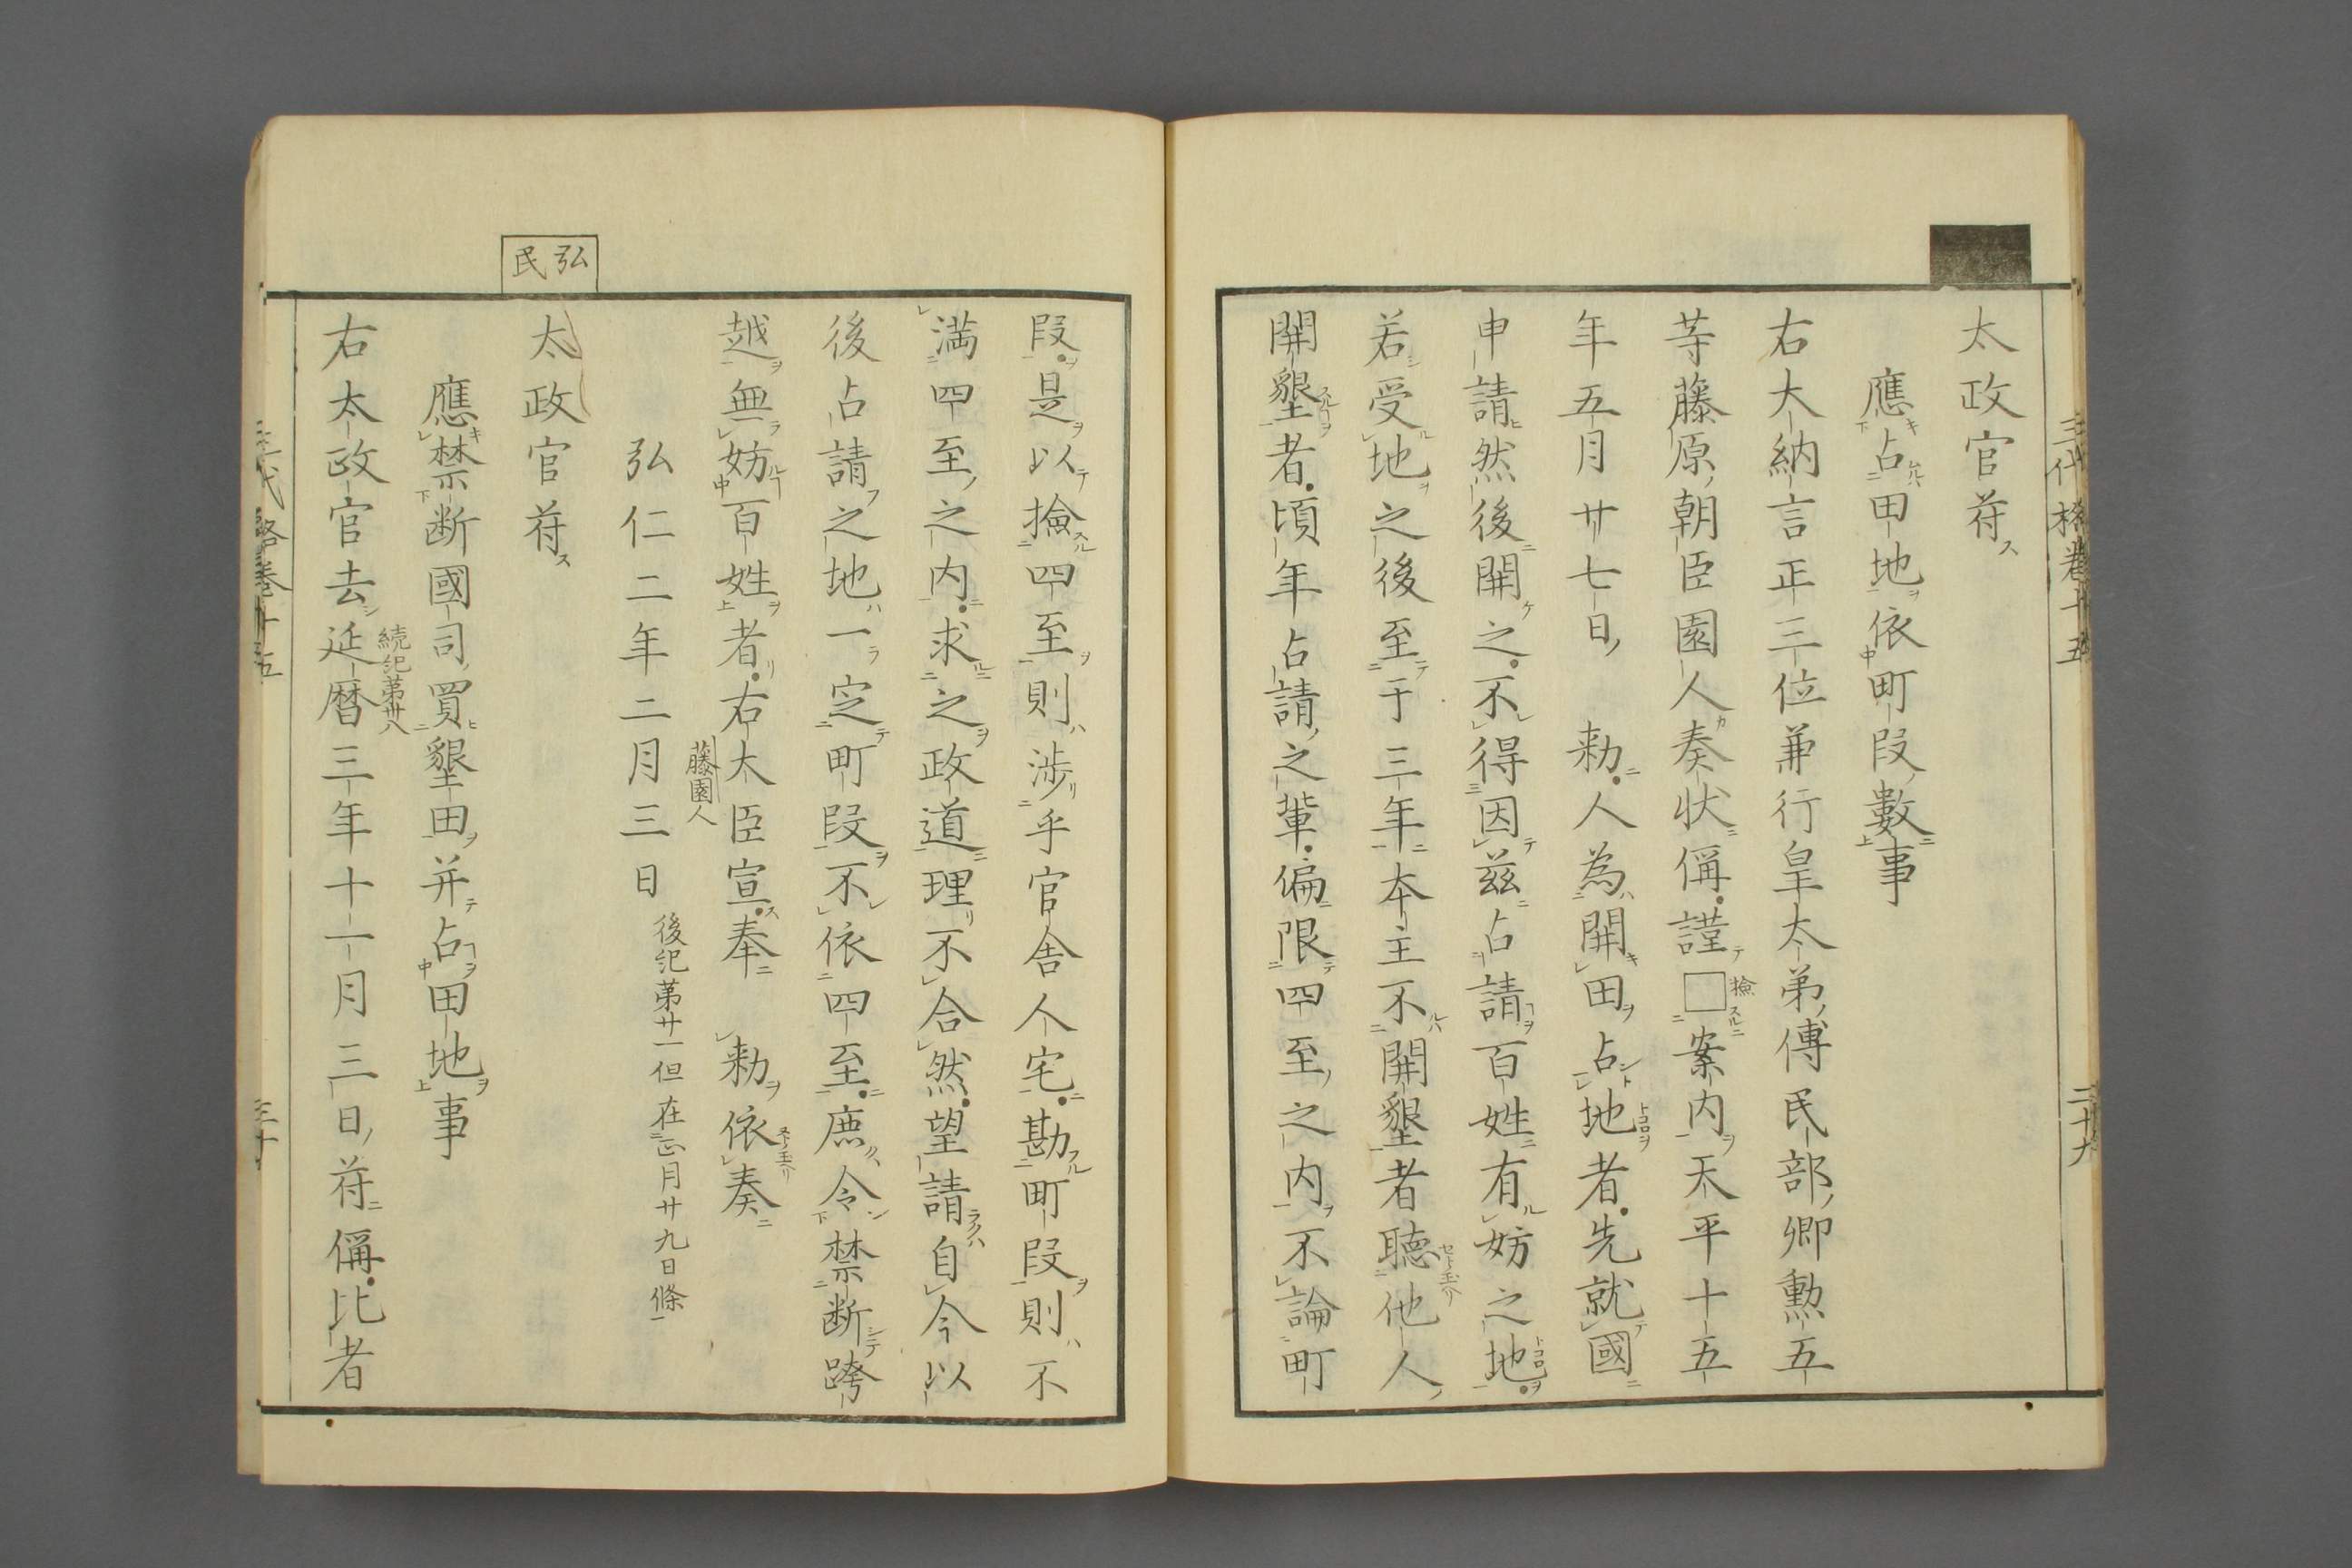 三代格巻十五
二十九
太政官符ス
應占田地依町段數事
右大納言正三位兼行皇太弟傅民部卿勲五
等藤原朝臣園人奏状偁謹□案内天平十五
檢スルニ
年五月廿七日 勅人為開田占地者先就國
申請然後開之不得因茲占請百姓有妨之地
若受地之後至于三年本主不開墾者聴他人
開墾者頃年占請之輩偏限四至之内不論町
段是以撿四至則渉乎官舎人宅勘町段則不
満四至之内求之政道理不合然望請自今以
後占請之地一定町段不依四至庶令禁断跨
越無妨百姓者右大臣宣奉 勅依奏
藤園人
弘仁二年二月三日 後紀第廿一但在正月廿九日條
弘民
太政官符ス
應禁断國司買墾田并占田地事
右太政官去延暦三年十一月三日符偁比者
続紀第卅八
三代格巻十五
三十